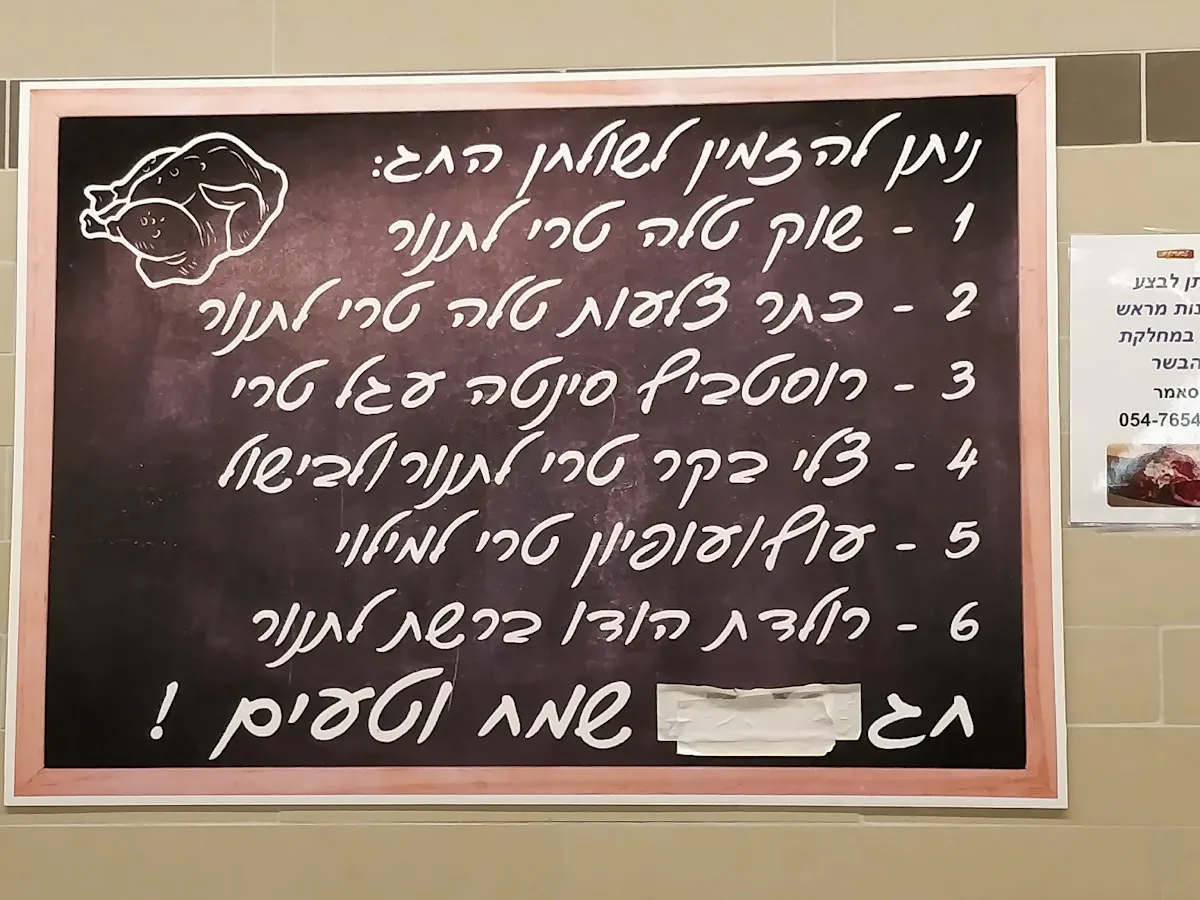 ניתן להזמין לשולחן החג:
1 - שוק טלה טרי לתנור
2 - כתר צלעות טלה טרי לתנור
3 - רוסטביף סינטה עגל טרי
4 - צלי בקר טרי לתנור/לבישול
5 - עוף/עופיון טרי למילוי
6 - רולדת הודו ברשת לתנור
חג שמח וטעים !
לבצע
מראש
במחלקת
הבשר
סאמר
054-7654